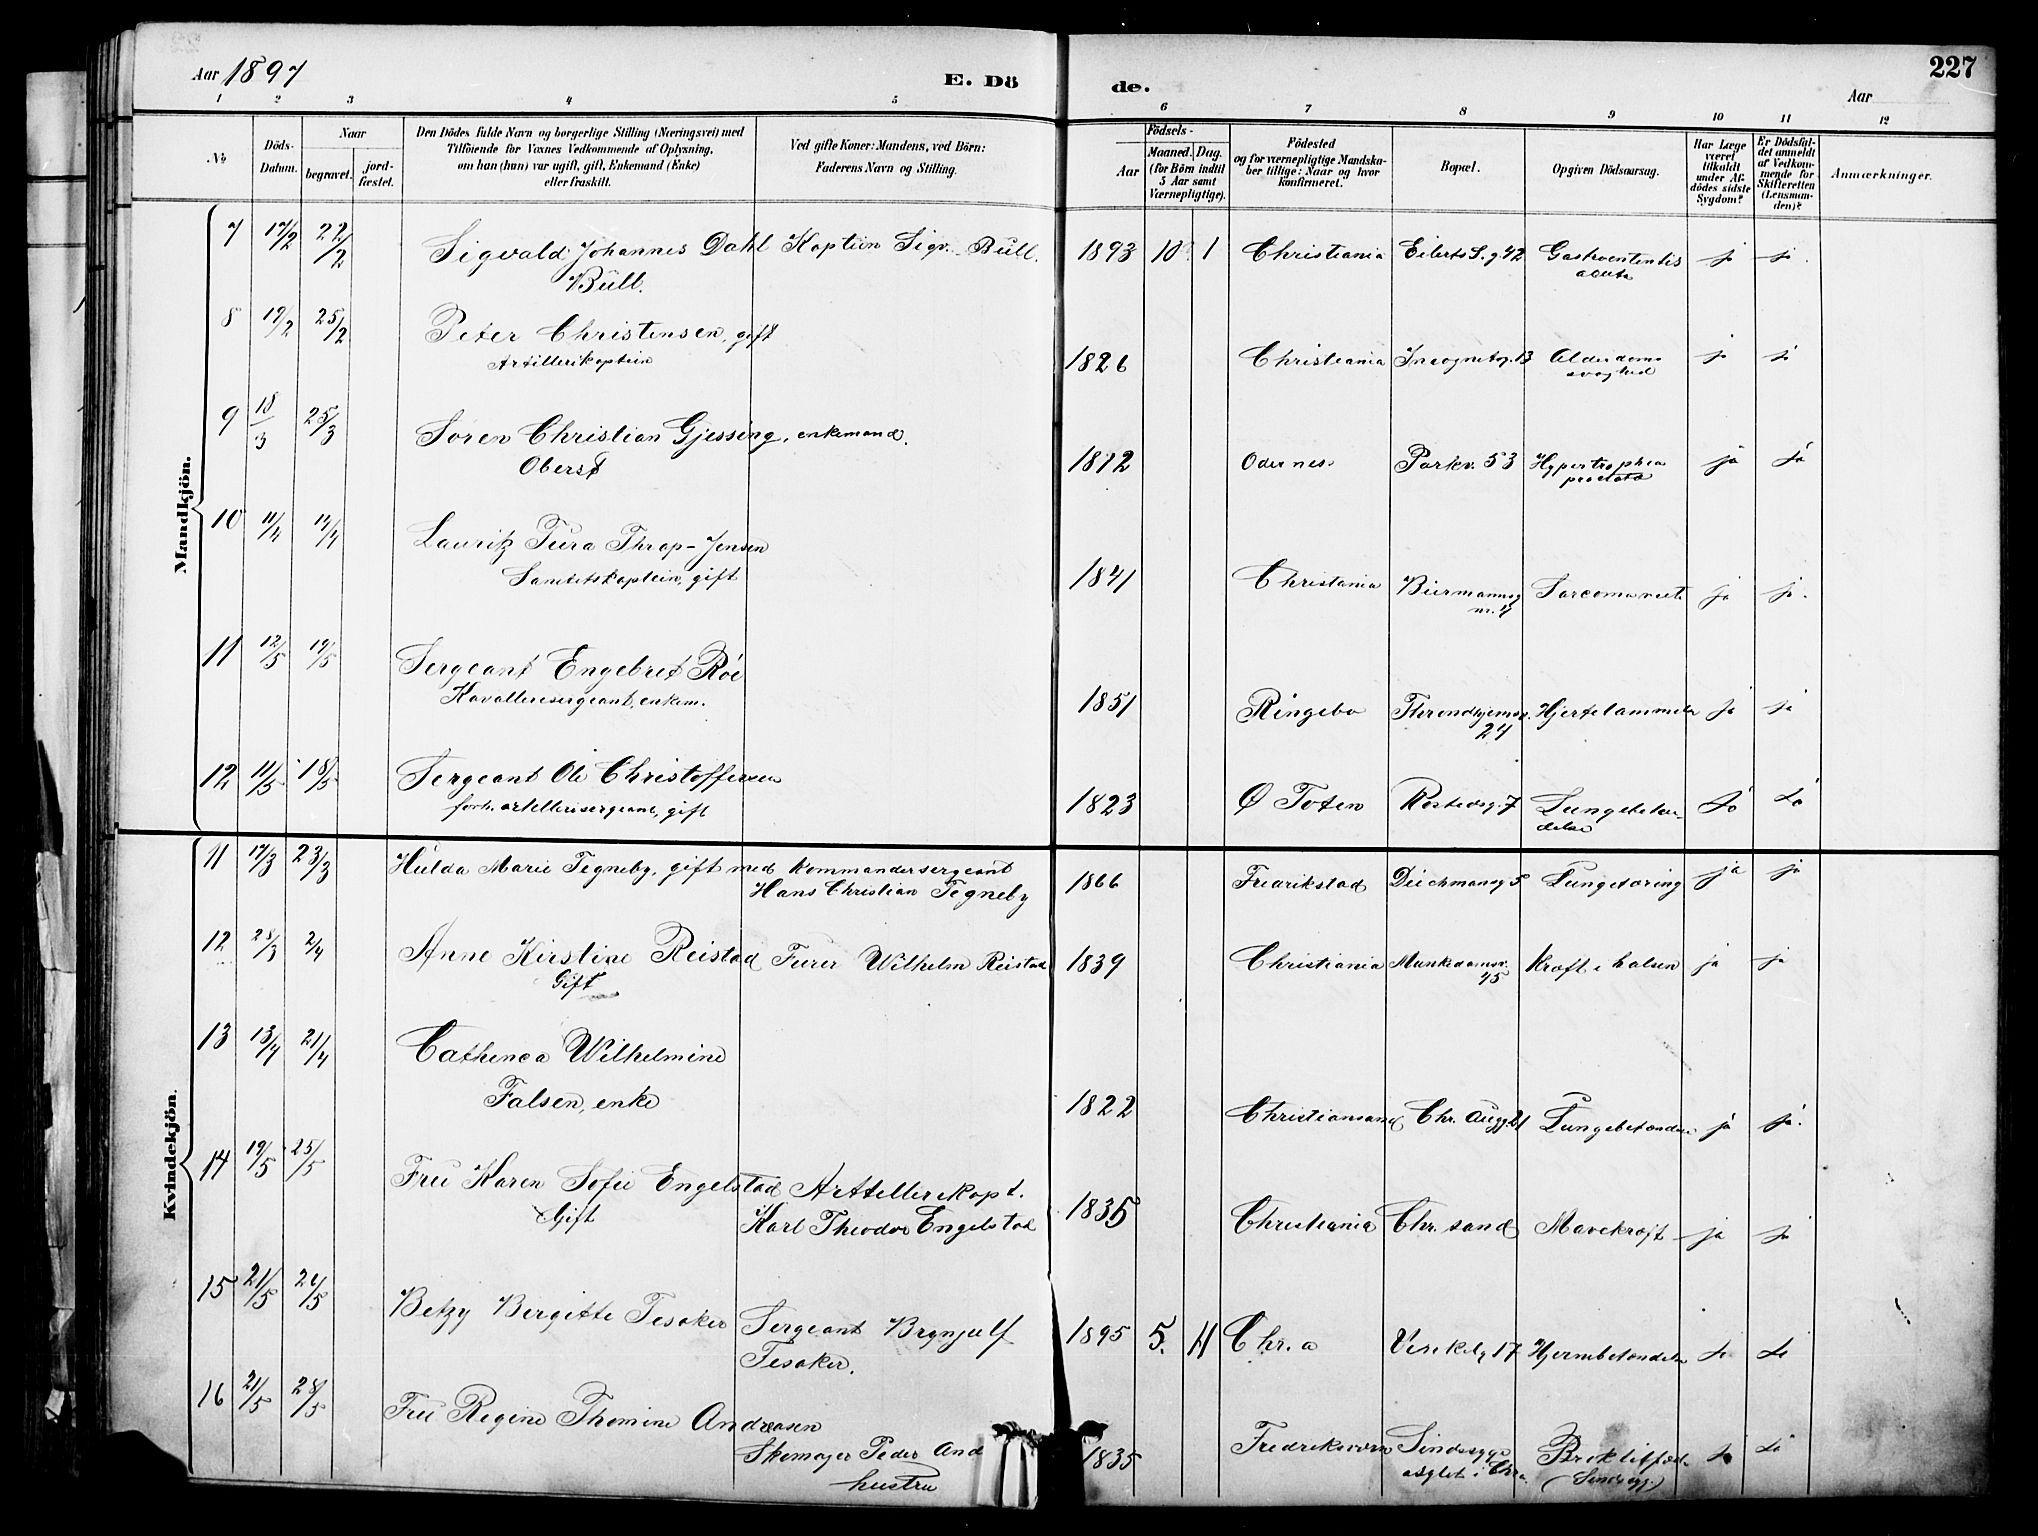 Aar 1897
E. Dö
de.
227
Aar
1 2 3 4 5 6 7 8 9 10 11 12
No
Döds-Datum.
Naar
begravet.
jord-fæstet.
Den Dödes fulde Navn og borgerlige Stilling (Næringsvei) med
Tilföiende for Voxnes Vedkommende af Oplysning,
om han (hun) var ugift, gift, Enkemand (Enke)
eller fraskilt.
Ved gifte Koner: Mandens, ved Börn:
Faderens Navn og Stilling.
Födsels-
Aar
Maaned. Dag.
(for Börn indtil
5 Aar samt
Værnepligtige).
Födested
og for værnepligtige Mandska-
ber tillige: Naar og hvor
konfirmeret.
Bopæl.
Opgiven Dödsaarsag.
Har Læge
været
tilkaldt
under Af-
dödes sidste
Sygdom?
Er Dödsfal-
det anmeldt
af Vedkom-
mende for
Skifteretten
(Lensman-
den)?
Anmærkninger.
Mandkjön.
7 17/2 22/2 Sigvald Johannes Dahl Kaptein Sigv. Büll. 1893 10 1 Christiania Eilerts S. g. 42 Gastroenteritis ja ja.
Büll. acuta
8 19/2 25/2 Peter Christensen, gift 1826 Christiania Incognitog. 13 Alderdoms ja ja
Artillerikaptein svaghed
9 18/3 25/3 Sören Christian Gjessing, enkemand. 1812 Odernes Parkv. 53 Hypertrophia ja ja
Oberst prostata
10 11/4 17/4 Lauritz Tura Throp-Jensen 1841 Christania Biermannsg ja ja.
Sanitetskaptein, gift nr. 4
11 12/5 19/5 Sergeant Engebret Röe 1851 Ringebo Throndhjemsv. Hjertelammelse ja ja
Kavallerisergeant, enkem. 24
12 11/5 18/5 Sergeant Ole Christoffersen 1823 Ø Toten Rostedsg. 7 Lungebetæn- ja ja
forh. artillerisergeant, gift delse
Kvindekjön.
11 17/3 23/3 Hulda Marie Tegneby, gift med Kommandersergeant 1866 Fredrikstad Deichmansg 5 Lungetæring ja ja
Hans Christian Tegneby
12 28/3 2/4 Anne Kirstine Reistad Furer Wilhelm Reistad 1839 Christiania Munkedamsv. Kræft i halsen ja ja
Gift 45
13 13/4 21/4 Cathinca Wilhelmine
Falsen, enke 1822 Christiansand Chr. Augg. 21 Lungebetændelse ja ja.
14 19/5 25/5 Fru Karen Sofie Engelstad Artillerikapt. 1835 Christiania Chr. sand Mavekræft ja ja
Gift Karl Theodor Engelstad
15 21/5 Betzy Birgitte Tesaker Sergeant Brynjulf 1895 5. 11 Chr. a 17 Hjernebetændelse ja ja
Tesaker.
16 21/5 28/5 Fru Regine Thomine Andreasen 1835 Fredriksværn Sindssyge ja ja
Skomager Peder And asylet i Chra (Sindssyg.)
hustru